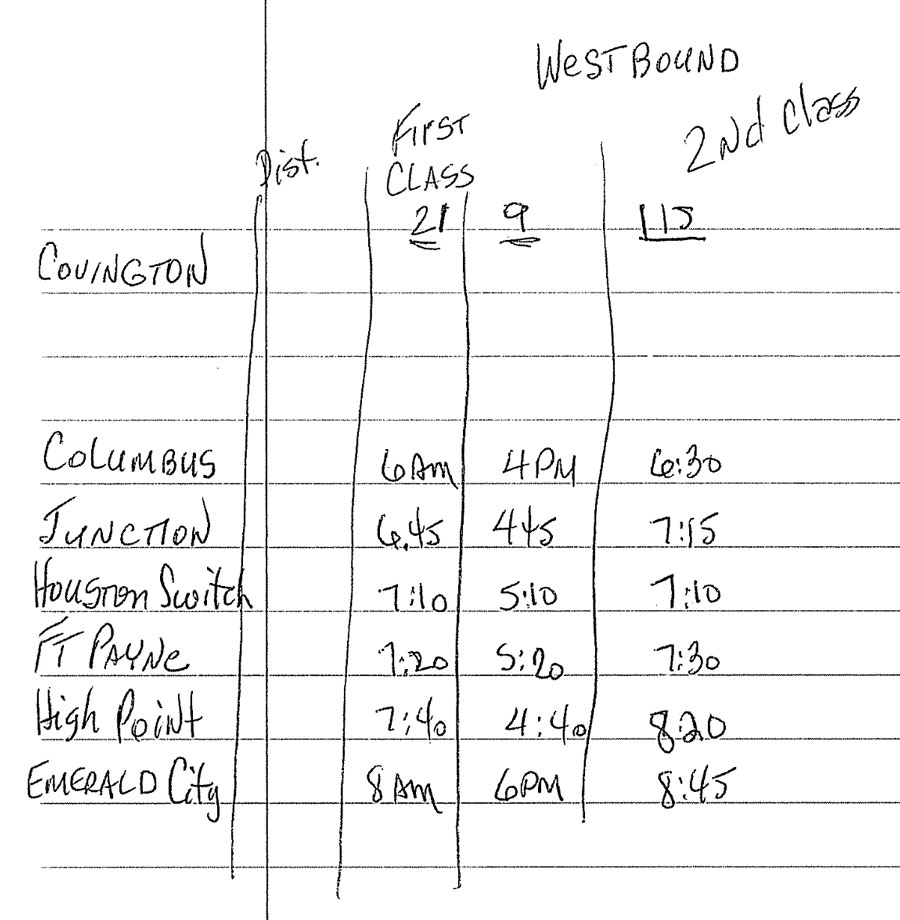 WESTBOUND
Dist. First CLASS 2Nd Class
21 9 115
COVINGTON
COLUMBUS 6AM 4PM 6:30
JUNCTION 6.45 445 7:15
HOUSTON Switch 7:10 5:10 7:10
FT PAYNE 7:20 5:20 7:30
High Point 7:40 4:40 820
EMERALD City 8AM 6PM 8:45